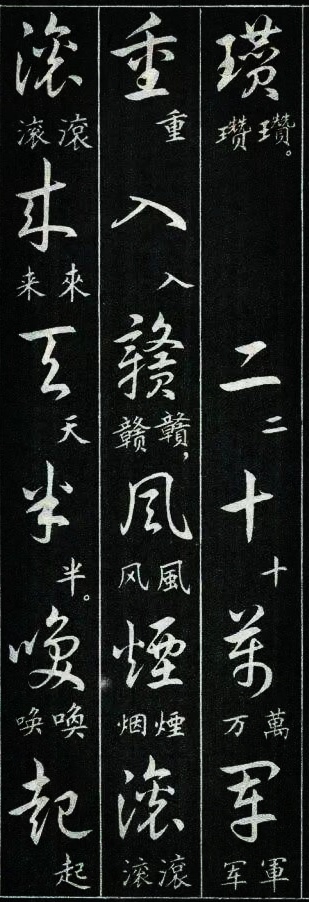 瓒 瓚。瓒 二 二 十 十 萬 萬 万 军 軍 军
重 重 入 入 赣 贛,赣 风 風 风 煙 煙 烟 滚 滾 滚
滚 滾 滚 来 來 来 天 天 半 半。 唤 喚 唤 起 起